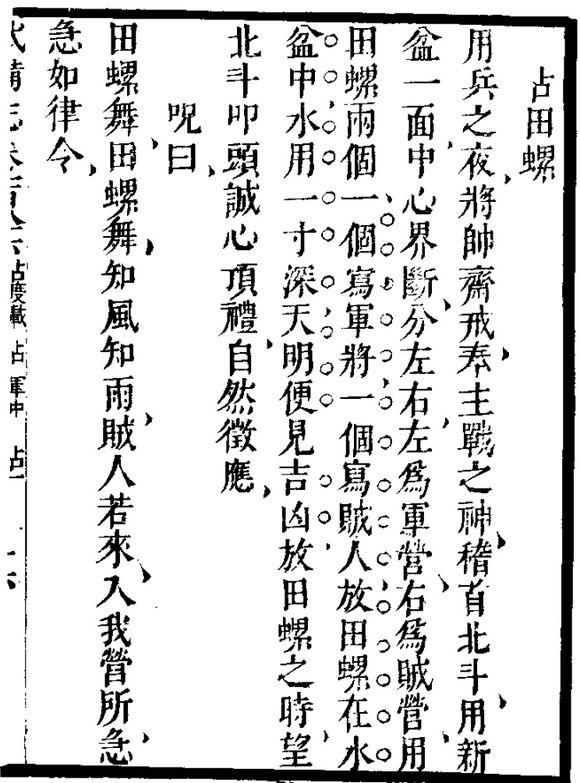 占田螺
用兵之夜將帥齋戒奉主戰之神稽首北斗用新
盆一面中心界斷分左右左爲軍營右爲賊營用
田螺兩個一個寫軍將一個寫賊人放田螺在水
盆中水用一寸深天明便見吉凶放田螺之時望
北斗叩頭誠心頂禮自然徵應
呪曰
田螺舞田螺舞知風知雨賊人若來入我營所急
急如律令
武備志卷 占度載 占 軍中 占